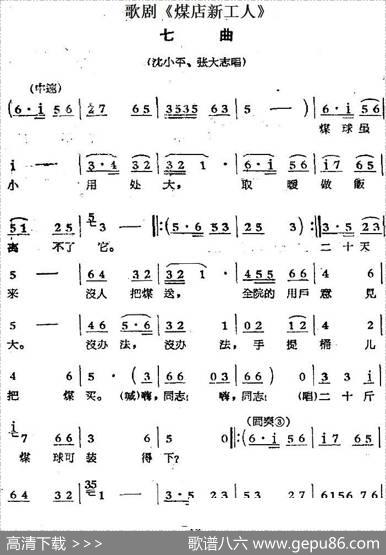 歌剧《煤店新工人》
七 曲
(沈小平、张大志唱)
(中速)
(6·i 56 | 2·7 65 | 3535 63 | 5 -) | 6·i 56
煤球虽
i - | 3·4 32 | 32 1 | 6·i 56 | i7 65
小 用处大, 取暖做飯
51 25 | 3 - ‖:(5·6 53 | 25 3):‖ 3·5 23
离不了它。 二十天
5 - | 64 32 | 32 1 | 4·555 66 | 4 6
来 沒人把煤送, 全院的用戶意見
5 - | 46 5·6 | 32 1 | 02 12 | 4 2
大。 沒办法,沒办法,手提桶儿
4 6 | 5·(3 | 66 03 | 66 0) | 3 3 i
把煤买。(喊)嗨,同志!嗨,同志!(唱)二十斤
(間奏③)
7 66 | 3 6 | 5 0 ‖:(6·i 56 | i7 65
煤球可装得下?
64 32 | 1 - | 3·5 23 | 5 - | 6156 76
高清下载 >>>
歌谱八六 www.gepu86.com